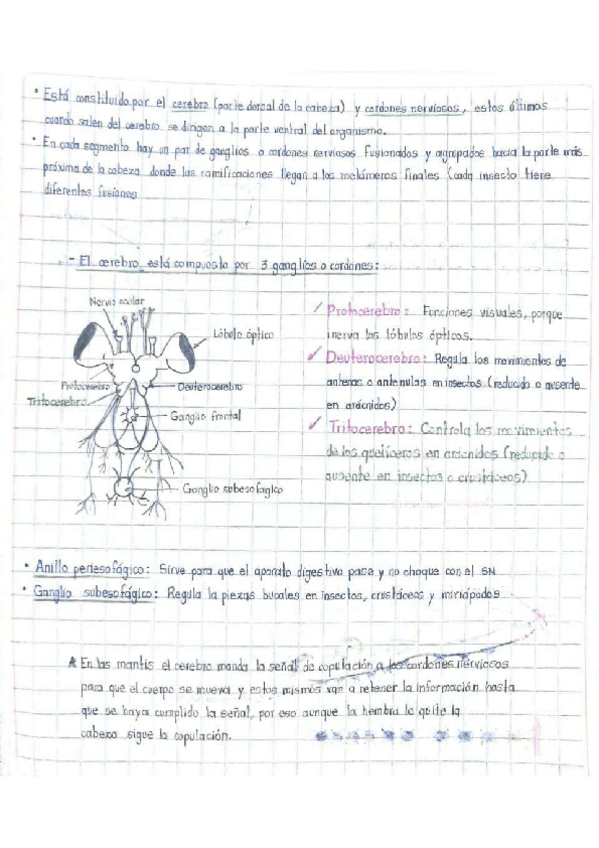 • Está constituido por el cerebro (parte dorsal de la cabeza) y cordones nerviosos, estos últimos
cuando salen del cerebro se dirigen a la parte ventral del organismo.
• En cada segmento hay un par de ganglios o cordones nerviosos fusionados y agrupados hacia la parte más
próxima de la cabeza donde las ramificaciones llegan a los metámeros finales (cada insecto tiene
diferentes fusiones
- El cerebro está compuesto por 3 ganglios o cordones:
Nervio ocular
Lóbulo óptico
Protocerebro
Deuterocerebro
Tritocerebro
Ganglio frontal
Ganglio subesofagico
✓ Protocerebro: Funciones visuales, porque
inerva los lóbulos ópticos.
✓ Deuterocerebro: Regula los movimientos de
antenas o antenulas en insectos (reducido o ausente
en arácnidos)
✓ Tritocerebro: Controla los movimientos
de los quelíceros en arácnidos (reducido o
ausente en insectos o crustáceos)
• Anillo periesofágico: Sirve para que el aparato digestivo pase y no choque con el SN
• Ganglio subesofágico: Regula la piezas bucales en insectos, crustáceos y miriápodos
* En las mantis el cerebro manda la señal de copulación a los cordones nerviosos
para que el cuerpo se mueva y estos mismos van a retener la información hasta
que se haya cumplido la señal, por eso aunque la hembra le quite la
cabeza sigue la copulación.